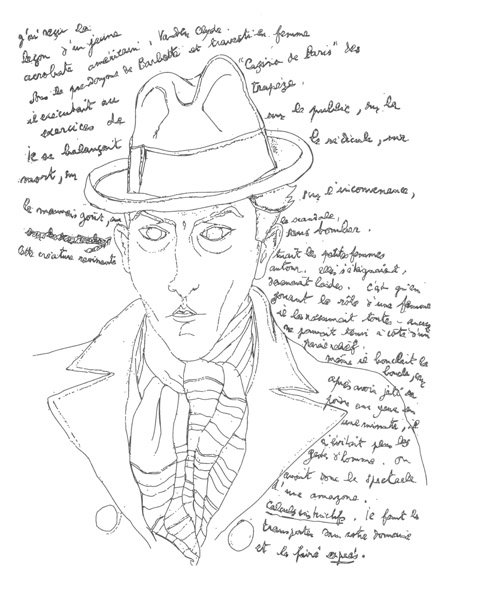 j'ai reçu la
leçon d'un jeune
acrobate américain, Vander Clyde.
Sous le pseudonyme de Barbette et travesti en femme
il exécutait au "Casino de Paris" des
exercices de trapèze.
Il se balançait sur le public, sur la
mort, sur le ridicule, sur
le mauvais goût, sur l'inconvenance,
le scandale,
sans tomber.
Cette créature ravissante
tuait les petites femmes
autour. elles s'éteignaient,
devenaient laides. C'est qu'en
jouant le rôle d'une femme
il les résumait toutes - aucune
ne pouvait tenir à côté d'un
même il bouclait la
boucle,
après avoir jeté sa
poudre aux yeux
une minute, il
n'évitait plus les
gestes d'homme. On
avait donc le spectacle
d'une amazone.
Calculs instinctifs. Il faut les
transporter dans notre domaine
et les faire exprès.